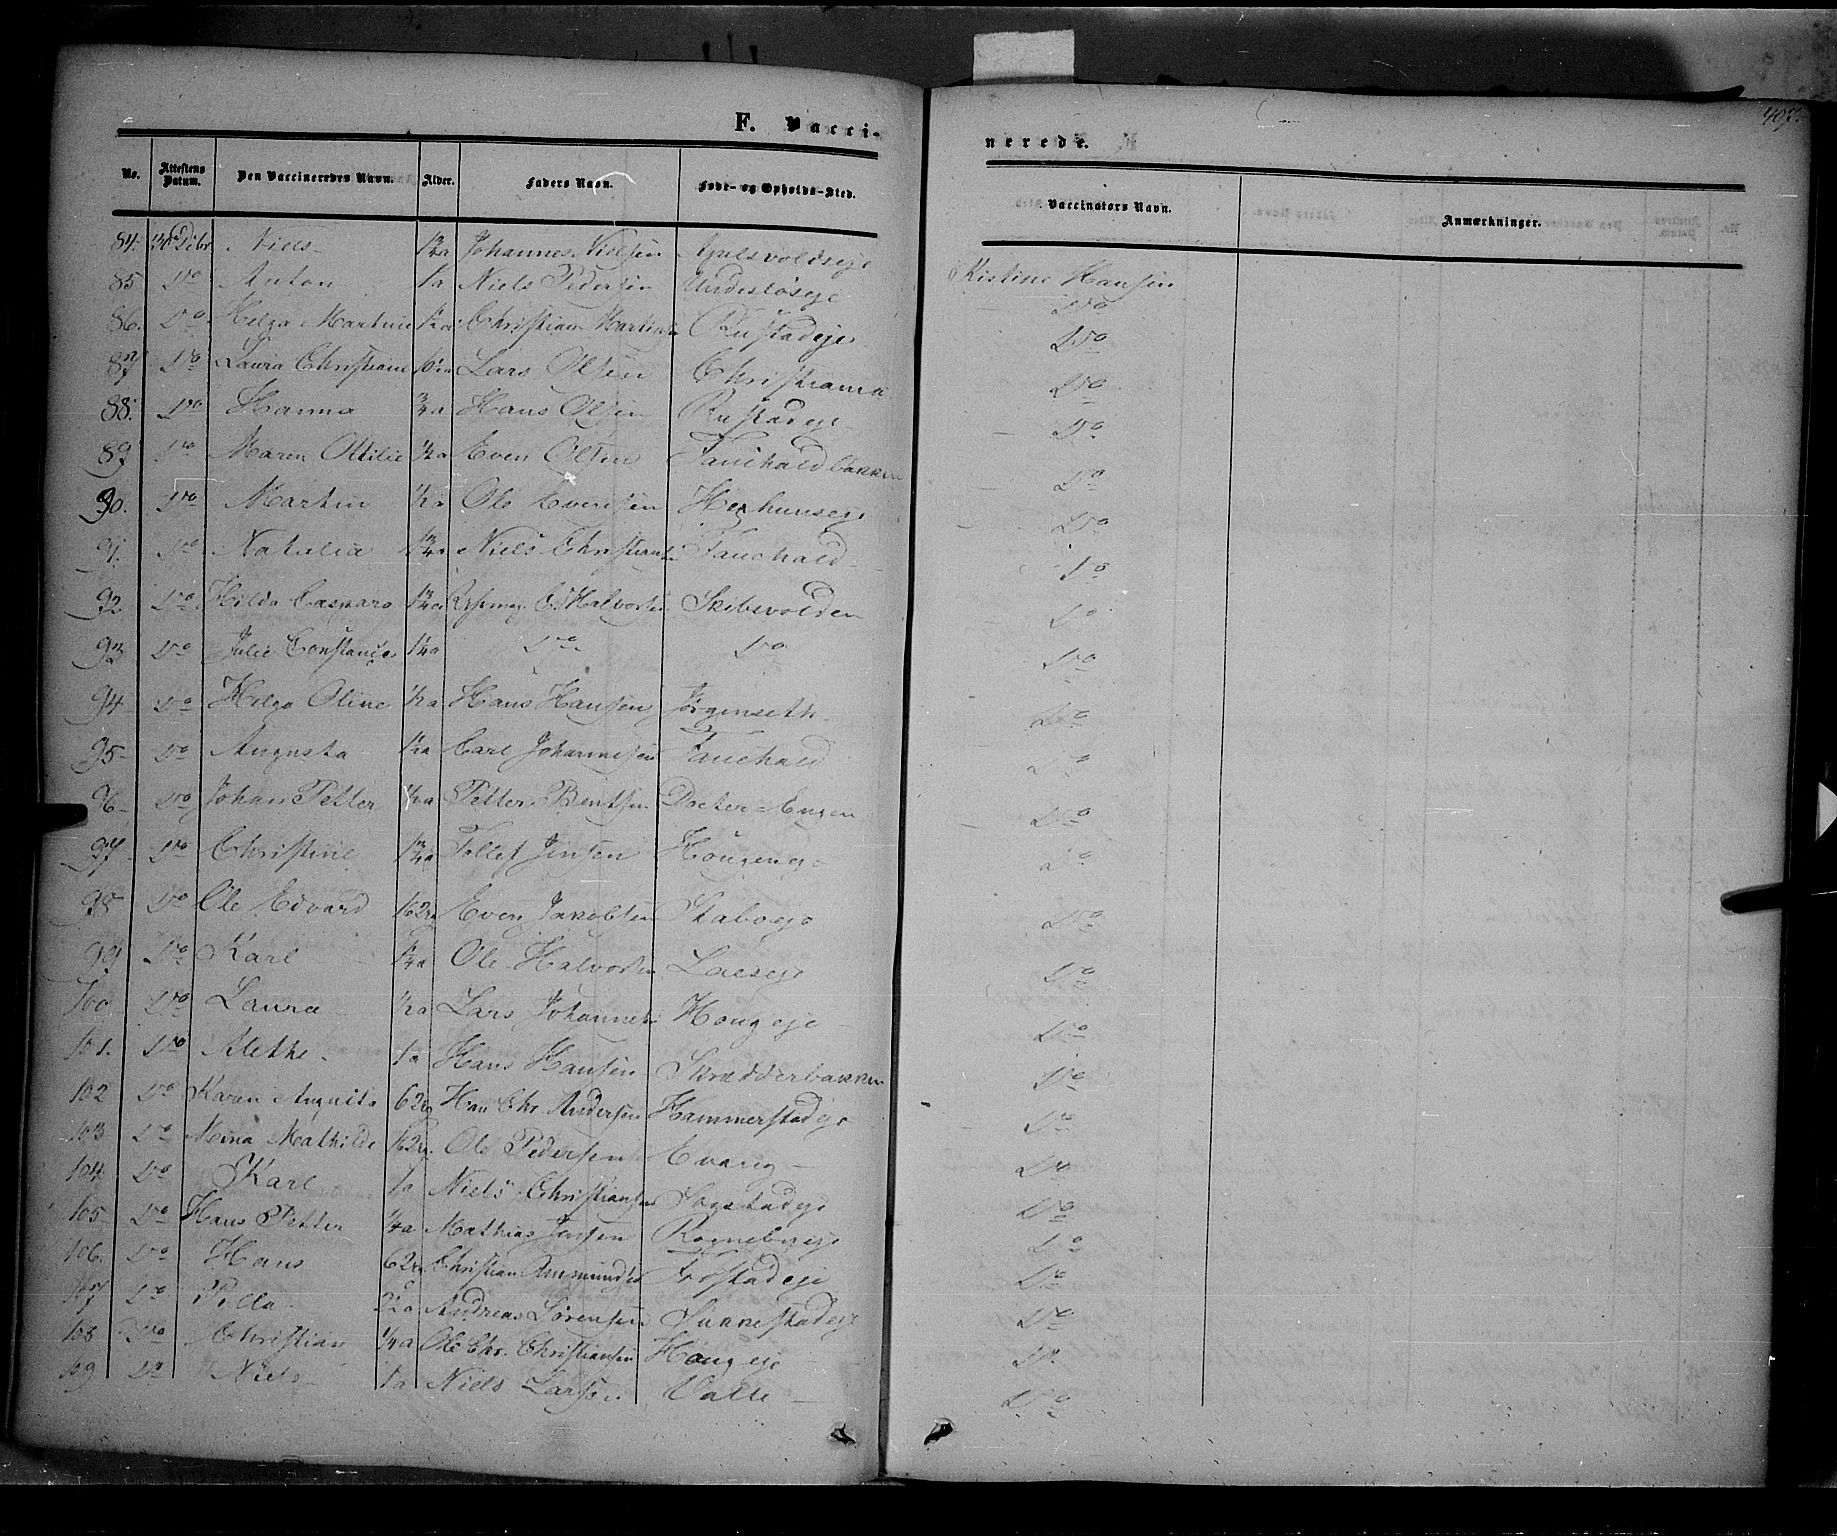 F. Vacci-
nerede.
405.
No. Attestens Datum. Den Vaccineredes Navn. Alder. Faders Navn. Føde- og Opholds-Sted.
Vaccinators Navn. Anmærkninger.
84. Niels Johannes Nielsen Apelsvoldseje Kistine Hansen
85 Do Anton 1a Niels Pedersen Do
86. Do Helga Martine Christian Rustadeje Do
87 Do Laura Christiane Lars Olsen Christiania Do
88. Do Hanna 3/4a Hans Olsen Rustadeje Do
89 Do Maren Ottilie 1/2a Even Olsen Fauchaldbakken Do
90. Do Martin 1/2a Ole Evensen Do
91. Do Natalia 1 3/4a Niels Christiansen Fauchald Do
92 Do Hilda Caspara 1 3/4a Halvorsen Skibsvolden Do
93 Do Julie Constance 1/4a Do Do Do
94 Do Helga Oline 1/2a Hans Hansen Jørgenseth Do
95 Do Augusta 1/2a Carl Johannesen Fauchald Do
96 Do Johan Petter 1/2a Petter Bentsen Docter-Engen Do
97 Do Christine 1 3/4a Tollef Jensen Do
98 Do Ole Edvard Even Jakobsen Staboeje Do
99 Do Karl 1/4a Ole Halvorsen Do
100 Do Laura 1/2a Lars Johannesen Hougeje Do
101. Do Alethe 1a Hans Hansen Skrædderbakken Do
102 Do Karen Augusta Hans Chr Andersen Hammerstadeje Do
103 Do Mina Mathilde Ole Pedersen Evang Do
104 Do Karl 1a Niels Christiansen Sogstadeje Do
105 Do Hans Petter 1/4a Mathias Jensen Rognebyeje Do
106. Do Hans Christian Amundsen Frøstadeje Do
107 Do Andreas Sørensen Sukkestadeje Do
108 Do Christian 1/4a Ole Chr. Christiansen Hougeje Do
109 Do Niels 1a Niels Larsen Valle Do